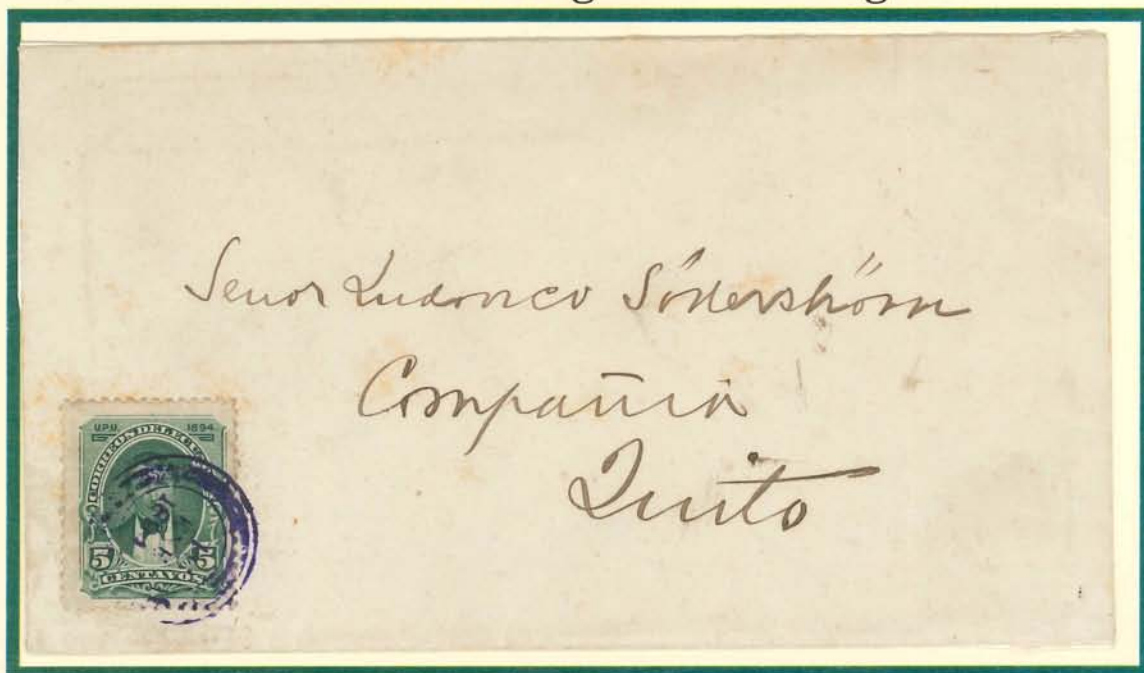 Senor Ludovico Söderström
Compañia
Quito
U.P.U. 1894
CORREOS DEL ECUA
5 5
CENTAVOS